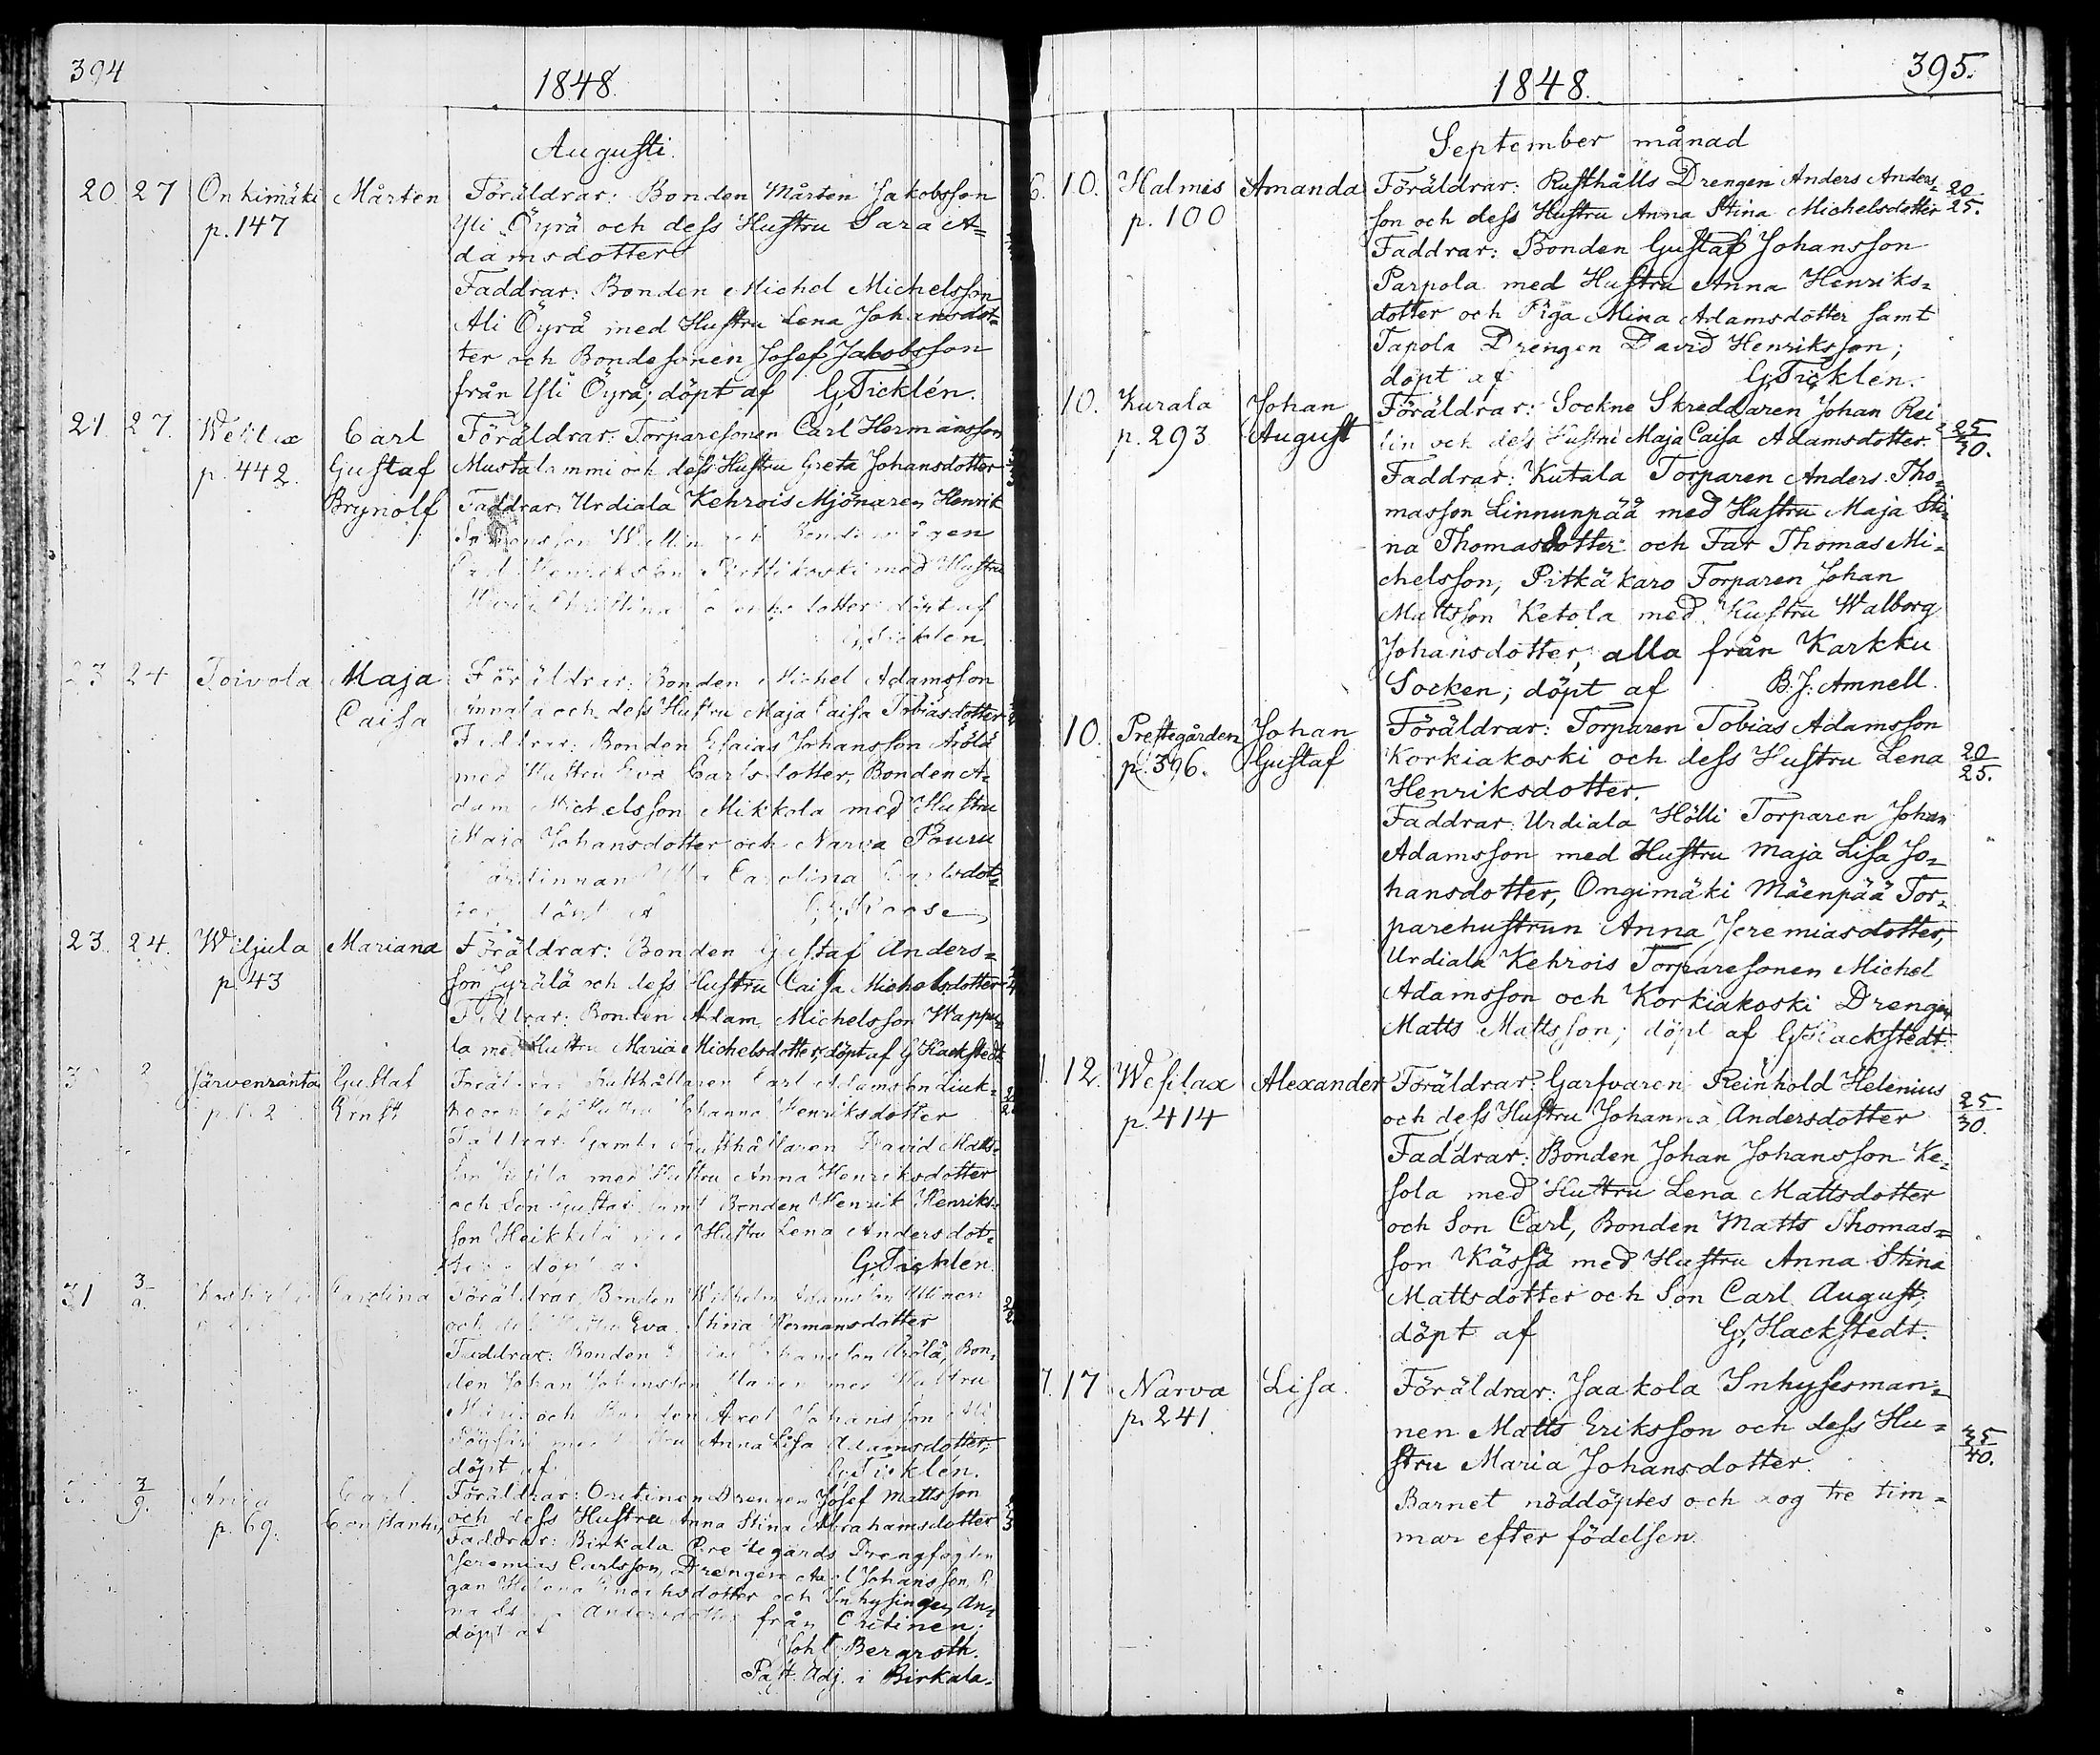 394
1848.
Augusti.
20. 27 Onkimäki Mårten Föräldrar: Bonden Mårten Jakobsson
p. 147 Yli Öyrä och dess Hustru Sara A=
damsdotter
Faddrar: Bonden Michel Michelsson
Ali Öyrä med Hustru Lena Johansdot=
ter och Bondesonen Josef Jakobsson
från Yli Öyrä; döpt af G. Ticklén.
21 27. Carl Föräldrar: Torparesonen Carl Hermansson
p. 442. Gustaf Mustalammi och dess Hustru Greta Johansdotter
Brynolf Faddrar: Urdiala Kehrois Mjönaren Henrik
med Hustru
dotter döpt af
G. Ticklén.
23 24 Toivola Maja Föräldrar: Bonden Michel Adamsson
Caisa Annala och dess Hustru Maja Caisa Tobiasdotter
Faddrar: Bonden Esaias Johansson Ärölä
med Hustru Eva Carlsdotter, Bonden A=
dam Michelsson Mikkola med Hustru
Maja Johansdotter och Narva Pouru
Värdinnan Carolina Carlsdot=
ter, döpt af
23. 24. Wiljula Mariana Föräldrar: Bonden Gustaf Anders=
p. 43 son Jyrälä och dess Hustru Caisa Michelsdotter
Faddrar: Bonden Adam Michelsson Wappu=
la med Hustru Maria Michelsdotter, döpt af G. Hackstedt.
Järvenranta Gustaf Föräldrar: Rusthållaren Carl Adamsson Liuk=
Ernst ko och dess Hustru Johanna Henriksdotter
Faddrar: Gamle Rusthållaren David Matts=
son med Hustru Anna Henriksdotter
och Son Gustaf samt Bonden Henrik Henriks=
son Heikkilä med Hustru Lena Andersdot=
ter; döpt af G. Ticklén.
31 3/9. Carolina Föräldrar: Bonden Wilhelm Adamsson
och dess Hustru Eva Stina Hermansdotter
Faddrar: Bonden Esaias Johansson Ärölä, Bon=
den Johan Johansson med Hustru
Maria och Bonden Axel Johansson Ali
med Hustru Anna Lisa Adamsdotter;
döpt af G. Ticklén.
3/9. Ania Carl Föräldrar: Drengen Josef Mattsson
p. 69. Constantin och dess Hustru Anna Stina Abrahamsdotter
Faddrar: Birkala Prestegårds Drengfogden
Jeremias Carlsson, Drengen Axel Johansson, Pi
gan Helena dotter och Inhysingen An=
na Andersdotter från
döpt af
Joh. Bergroth.
Past. Adj. i Birkala.
395.
1848.
September månad
6. 10. Halmis Amanda Föräldrar: Rusthålls Drengen Anders Anders= 20
p. 100 son och dess Hustru Anna Stina Michelsdotter 25.
Faddrar: Bonden Gustaf Johansson
Parpola med Hustru Anna Henriks=
dotter och Piga Mina Adamsdotter samt
Tapola Drengen David Henriksson;
döpt af G. Ticklén.
10. Kurala Johan Föräldrar: Sockne Skreddaren Johan Rei
p. 293 August lin och dess Hustru Maja Caisa Adamsdotter. 25/30.
Faddrar: Kutala Torparen Anders Tho=
masson Linnunpää med Hustru Maja Sti=
na Thomasdotter och Far Thomas Mi=
chelsson, Pitkäkaro Torparen Johan
Mattsson Ketola med Hustru Walborg
Johansdotter, alla från Karkku
Socken; döpt af B. J. Amnell.
10. Prestegården Johan Föräldrar: Torparen Tobias Adamsson
p. 396. Gustaf Korkiakoski och dess Hustru Lena 20/25.
Henriksdotter.
Faddrar: Urdiala Hölli Torparen Johan
Adamsson med Hustru Maja Lisa Jo=
hansdotter, Ongimäki Mäenpää Tor=
parehustrun Anna Jeremiasdotter,
Urdiala Kehrois Torparesonen Michel
Adamsson och Korkiakoski Drengen
Matts Mattsson; döpt af G. Hackstedt.
12. Wesilax Alexander Föräldrar: Garfvaren Reinhold Helenius
p. 414 och dess Hustru Johanna Andersdotter 25/30.
Faddrar: Bonden Johan Johansson Ke=
sola med Hustru Lena Mattsdotter
och Son Carl, Bonden Matts Thomas=
son Kässä med Hustru Anna Stina
Mattsdotter och Son Carl August;
döpt af G. Hackstedt.
17 Narva Lisa. Föräldrar: Jaakola Inhysesman=
p. 241. nen Matts Eriksson och dess Hu=
stru Maria Johansdotter. 35/40.
Barnet nöddöptes och dog tre tim=
mar efter födelsen.